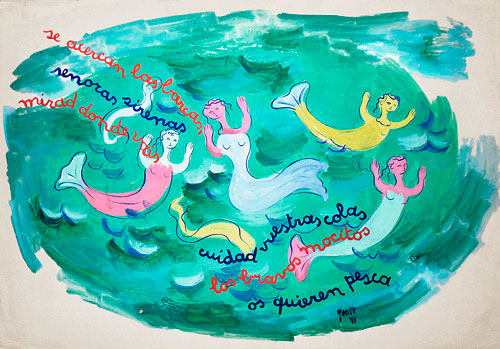 se acercan las barcas
señoras sirenas
mirad donde vais
cuidad vuestras colas
los bravos mocitos
os quieren pesca